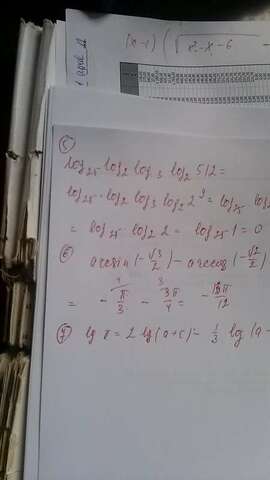 (x-1) (√x²-x-6 -
april 22
⑤
log₂₅ log₂ log₃ log₂ 512 =
log₂₅ · log₂ log₃ log₂ 2⁹ = log₂₅ log
= log₂₅ log₂ 2 = log₂₅ 1 = 0
⑥ arcsin (-√3/2) - arccos (-√2/2)
= - π/3 - 3π/4 = - 13π/12
⑦ lg x = 2 lg (a+c) - 1/3 log (a -